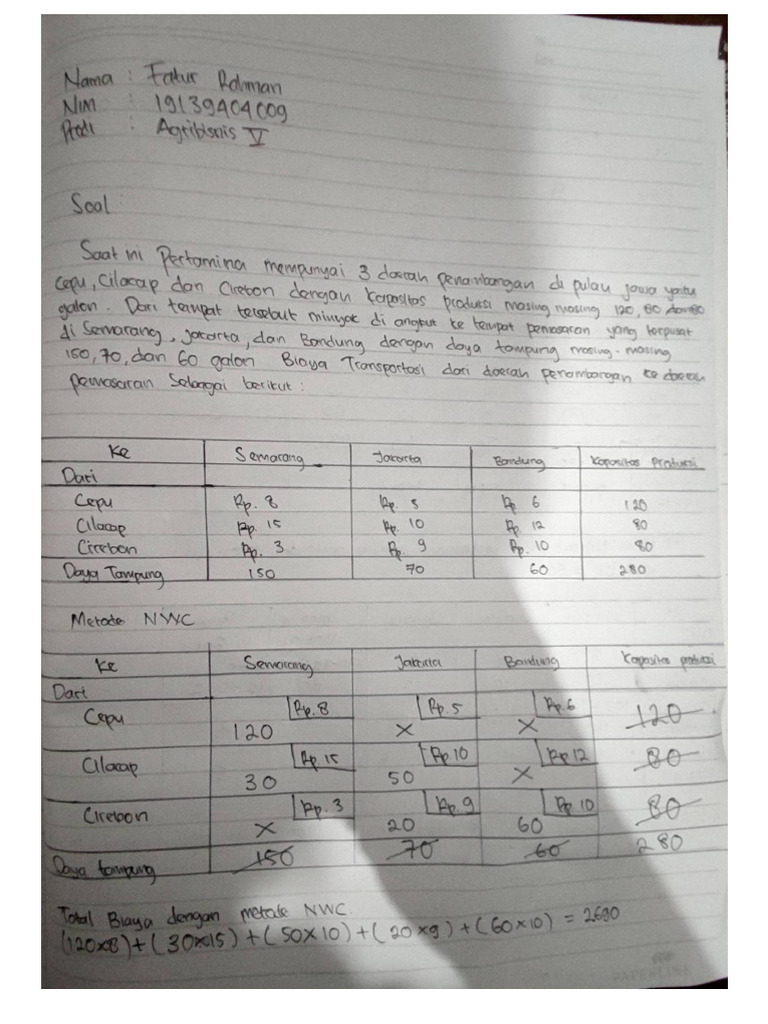 Nama : Fatur Rahman
NIM : 19139404009
Prodi : Agribisnis V
Soal :
Saat ini Pertamina mempunyai 3 daerah penambangan di pulau jawa yaitu
Cepu, Cilacap dan Cirebon dengan kapasitas produksi masing masing 120, 80 dan 80
galon. Dari tempat tersebut minyak di angkut ke tempat pemasaran yang terpusat
di Semarang, Jakarta, dan Bandung dengan daya tampung masing-masing
150, 70, dan 60 galon Biaya Transportasi dari daerah penambangan ke daerah
pemasaran Sebagai berikut :
Ke Semarang Jakarta Bandung Kapasitas Produksi
Dari
Cepu Rp. 8 Rp. 5 Rp 6 120
Cilacap Rp. 15 Rp. 10 Rp. 12 80
Cirebon Rp. 3 Rp. 9 Rp. 10 80
Daya Tampung 150 70 60 280
Metode NWC
Ke Semarang Jakarta Bandung Kapasitas produksi
Dari
Cepu 120 Rp.8 X Rp.5 X Rp.6 120
Cilacap 30 Rp 15 50 Rp.10 X Rp 12 80
Cirebon X Rp.3 20 Rp.9 60 Rp.10 80
Daya tampung 150 70 60 280
Total Biaya dengan metode NWC.
(120x8) + (30x15) + (50x10) + (20x9) + (60x10) = 2690
PAPERLINE